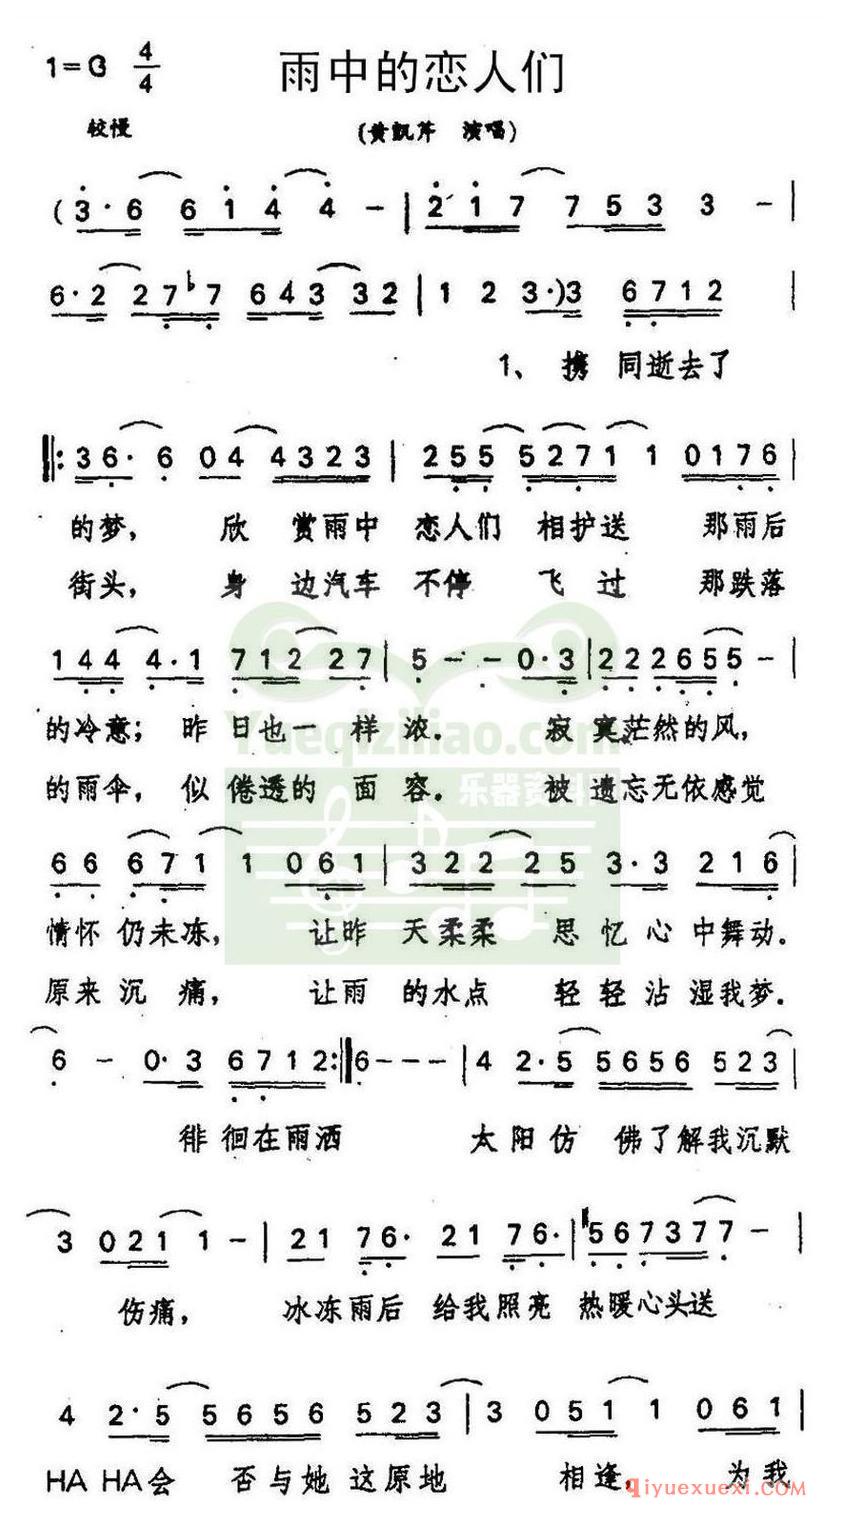 1=G 4/4 雨中的恋人们
较慢 (黄凯芹 演唱)
(3·6 6 1 4 4 - | 2·1 7 7 5 3 3 - |
6·2 2 7 ♭7 6 4 3 3 2 | 1 2 3·)3 6 7 1 2
1、携 同逝去了
‖: 3 6· 6 0 4 4 3 2 3 | 2 5 5 5 2 7 1 1 0 1 7 6 |
的梦, 欣 赏雨中 恋人们 相护送 那雨后
街头, 身 边汽车 不停 飞过 那跌落
1 4 4 4·1 7 1 2 2 7 | 5 - - 0·3 | 2 2 2 6 5 5 5 - |
的冷意; 昨 日也一样浓。 寂 寞茫然的风,
的雨伞, 似 倦透的面容。 被 遗忘无依感觉
Yueqiziliao.com
乐器资料
6 6 6 7 1 1 0 6 1 | 3 2 2 2 2 5 3·3 2 1 6 |
情怀 仍未冻, 让昨 天柔柔 思忆心中舞动。
原来 沉痛, 让雨 的水点 轻轻沾湿我梦。
6 - 0·3 6 7 1 2 :‖ 6 - - - | 4 2·5 5 6 5 6 5 2 3 |
徘 徊在雨洒 太阳仿 佛了解我沉默
3 0 2 1 1 - | 2 1 7 6· 2 1 7 6· | 5 6 7 3 7 7 - |
伤痛, 冰冻雨后 给我照亮 热暖心头送
4 2·5 5 6 5 6 5 2 3 | 3 0 5 1 1 0 6 1 |
HA HA会 否与她这原地 相逢, 为我
qiyuexuexi.com